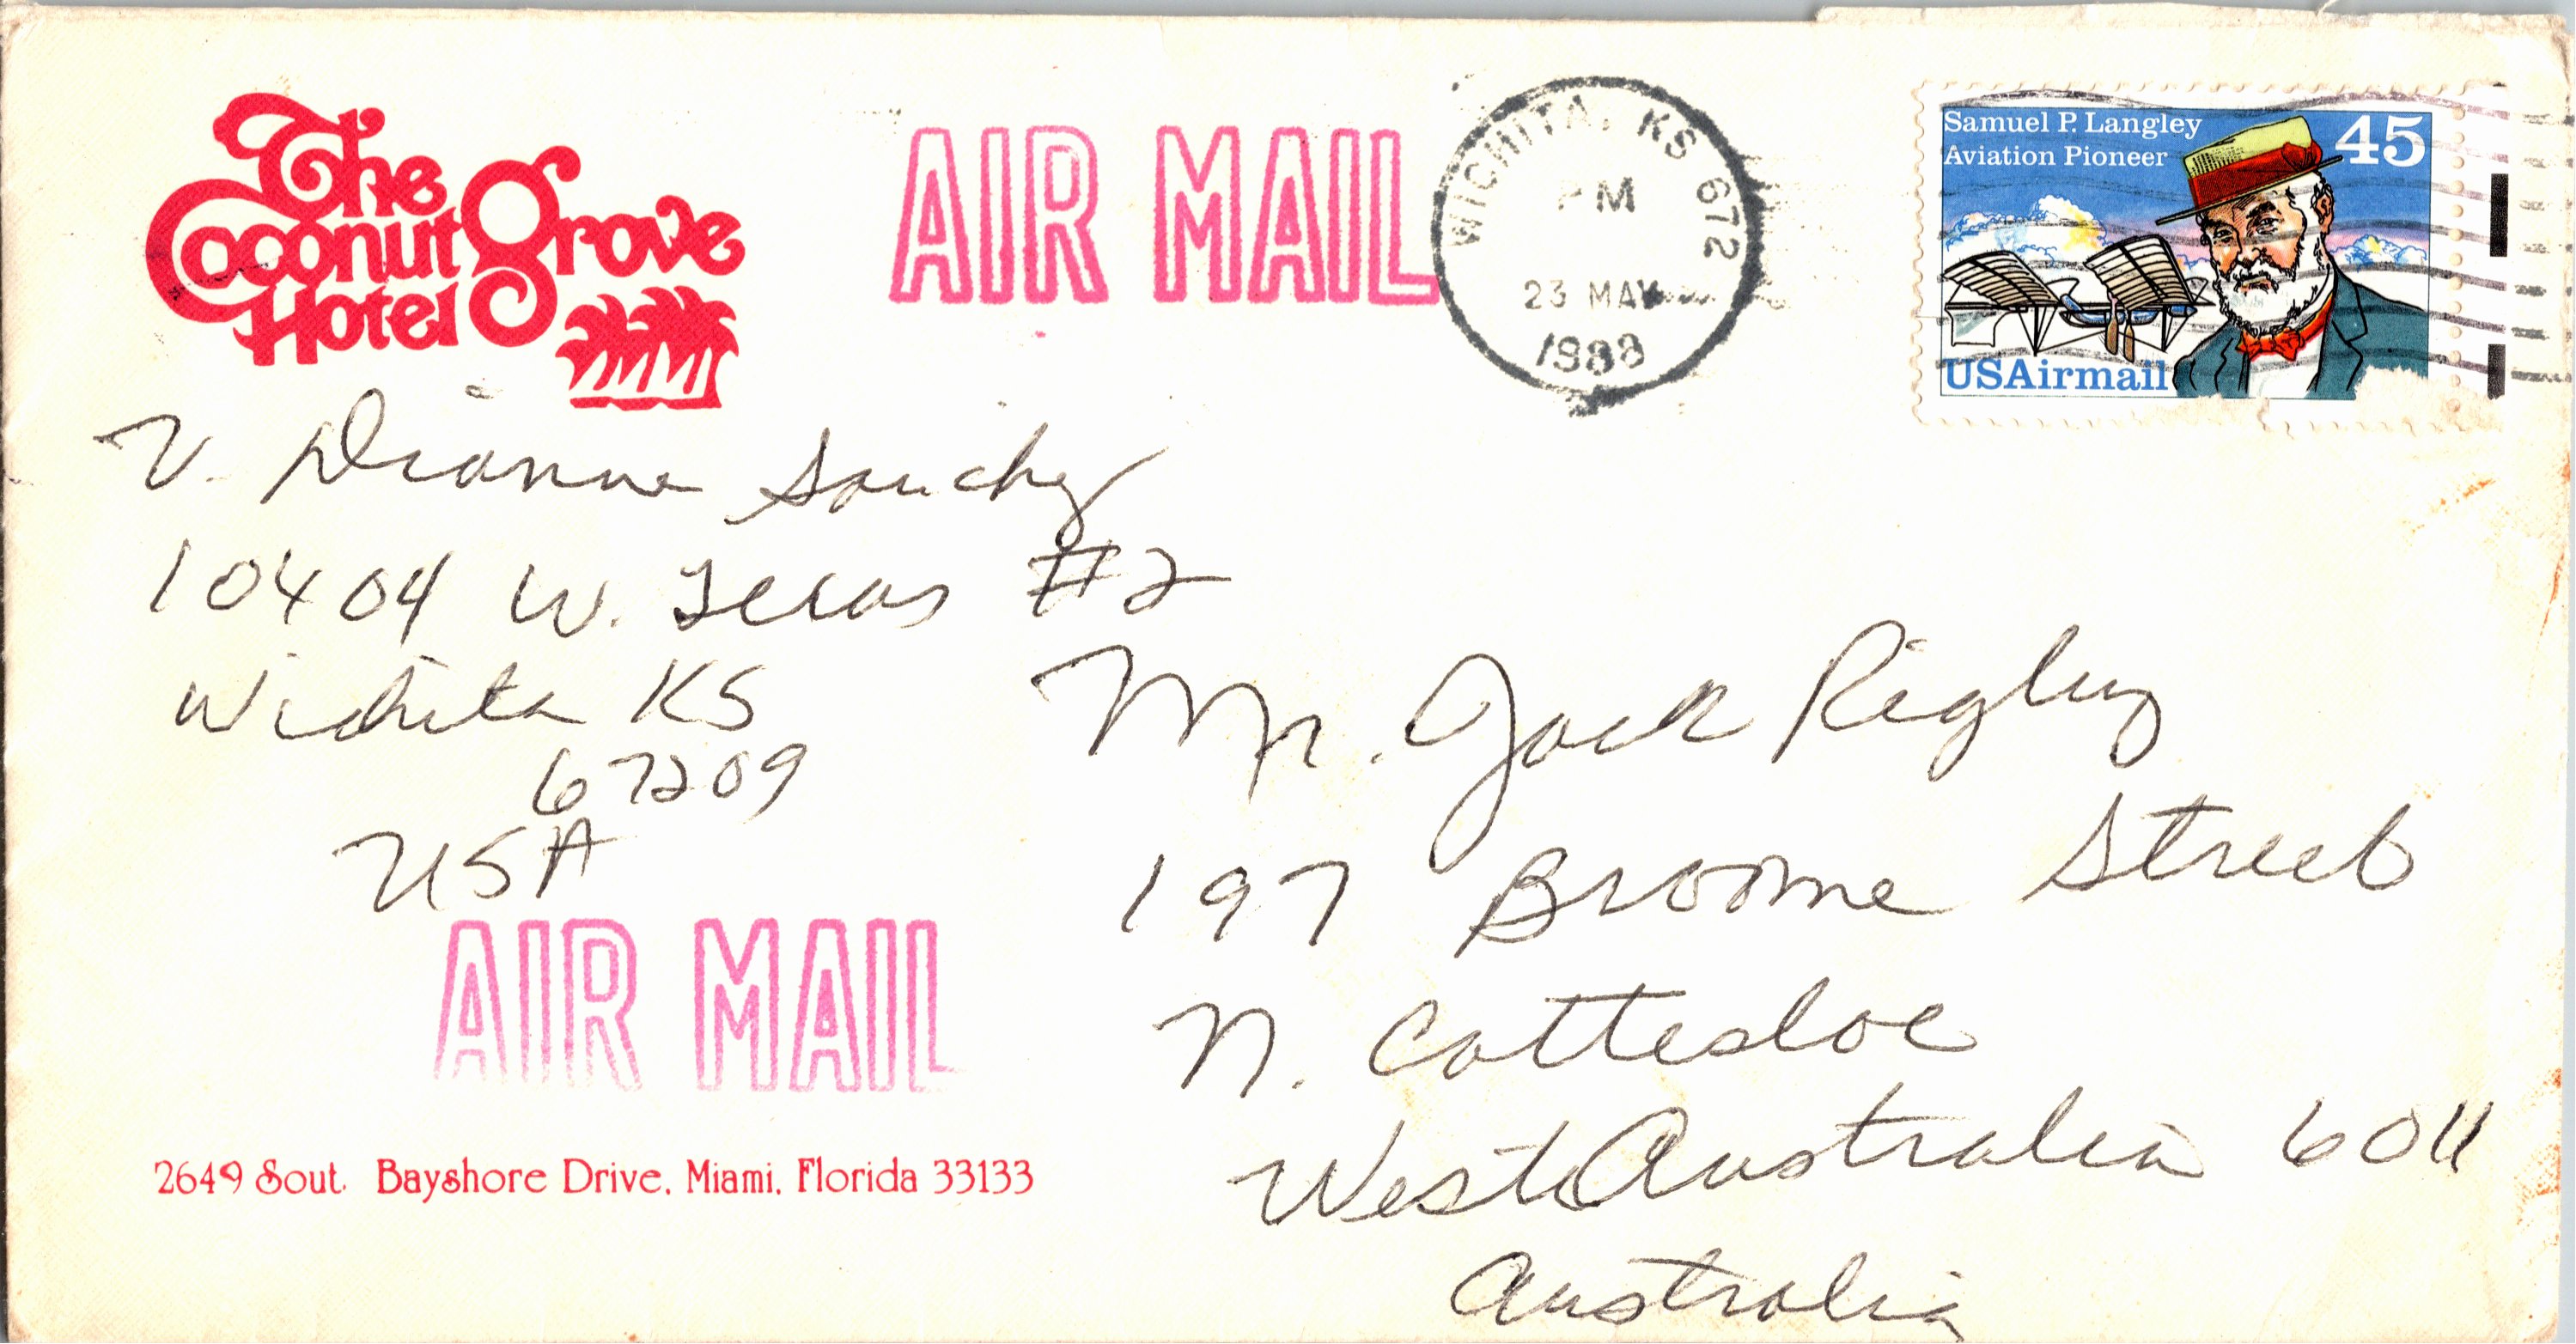 The
Coconut Grove
Hotel
AIR MAIL
WICHITA, KS 672
PM
23 MAY
1988
Samuel P. Langley
Aviation Pioneer
45
USAirmail
V. Dianne Sanchez
10404 W. Texas #2
Wichita KS
67209
USA
Mr. Jack Rigby
197 Broome Street
N. Cottesloe
West Australia 6011
Australia
AIR MAIL
2649 Sout. Bayshore Drive, Miami, Florida 33133